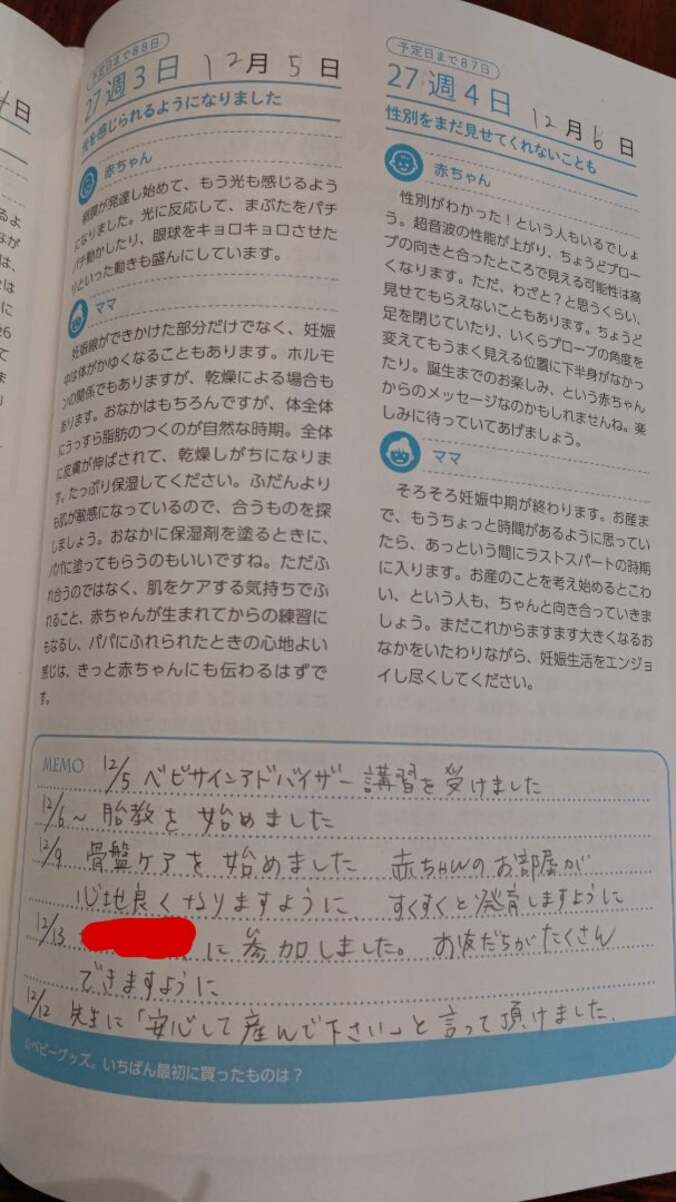 予定日まで88日
27週3日 12月5日
光を感じられるようになりました
赤ちゃん
網膜が発達し始めて、もう光も感じるよう
になりました。光に反応して、まぶたをパチ
パチ動かしたり、眼球をキョロキョロさせた
りといった動きも盛んにしています。
ママ
妊娠線ができかけた部分だけでなく、妊娠
中は体がかゆくなることもあります。ホルモ
ンの関係でもありますが、乾燥による場合も
あります。おなかはもちろんですが、体全体
にうっすら脂肪のつくのが自然な時期。全体
に皮膚が伸ばされて、乾燥しがちになりま
す。たっぷり保湿してください。ふだんより
も肌が敏感になっているので、合うものを探
しましょう。おなかに保湿剤を塗るときに、
パパに塗ってもらうのもいいですね。ただふ
れ合うのではなく、肌をケアする気持ちでふ
れること、赤ちゃんが生まれてからの練習に
もなるし、パパにふれられたときの心地よい
感じは、きっと赤ちゃんにも伝わるはずで
す。
予定日まで87日
27週4日 12月6日
性別をまだ見せてくれないことも
赤ちゃん
性別がわかった！という人もいるでしょ
う。超音波の性能が上がり、ちょうどプロー
ブの向きと合ったところで見える可能性は高
くなります。ただ、わざと？と思うくらい、
見せてもらえないこともあります。ちょうど
足を閉じていたり、いくらプローブの角度を
変えてもうまく見える位置に下半身がなかっ
たり。誕生までのお楽しみ、という赤ちゃん
からのメッセージなのかもしれませんね。楽
しみに待っていてあげましょう。
ママ
そろそろ妊娠中期が終わります。お産ま
で、もうちょっと時間があるように思ってい
たら、あっという間にラストスパートの時期
に入ります。お産のことを考え始めるとこわ
い、という人も、ちゃんと向き合っていきま
しょう。まだこれからますます大きくなるお
なかをいたわりながら、妊娠生活をエンジョ
イし尽くしてください。
MEMO 12/5 ベビサインアドバイザー講習を受けました
12/6〜 胎教を始めました
12/9 骨盤ケアを始めました 赤ちゃんのお部屋が
心地良くなりますように、すくすくと発育しますように
12/13 に参加しました。お友だちがたくさん
できますように
12/12 先生に「安心して産んで下さい」と言って頂けました.
☆ベビーグッズ。いちばん最初に買ったものは？